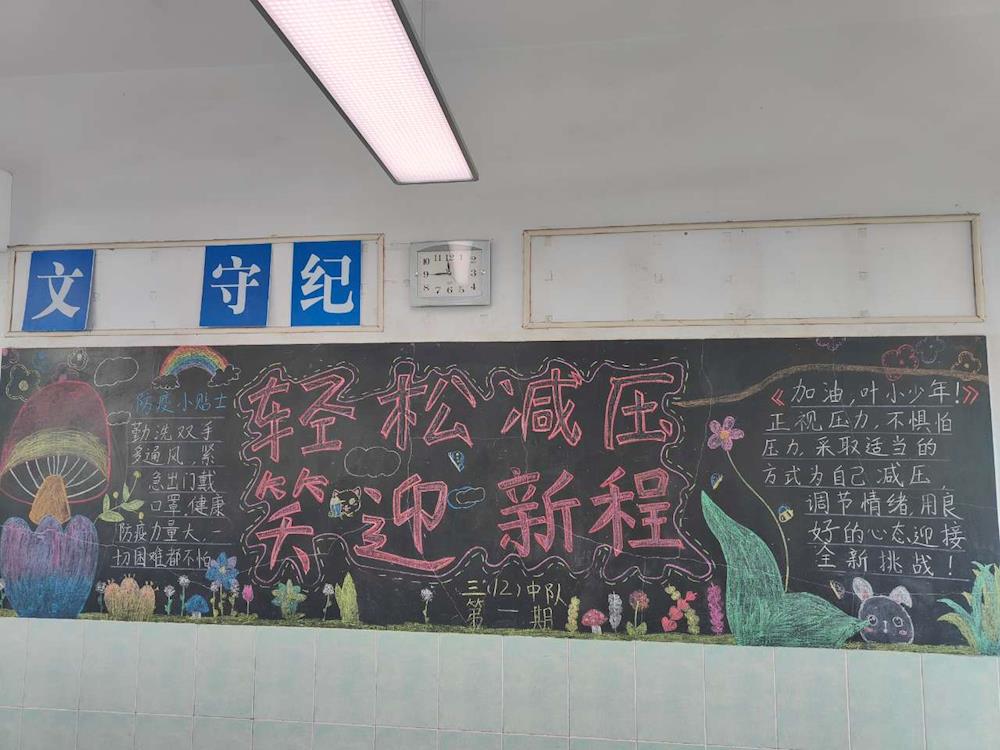 文 守 纪
10 11 12 1 2
9 3
8 7 6 5 4
防疫小贴士
勤洗双手
多通风,紧
急出门戴
口罩,健康
防疫力量大,一
切困难都不怕
轻松减压
笑迎新程
三(12)中队
第一期
《加油,叶小少年!》
正视压力,不惧怕
压力,采取适当的
方式为自己减压,
调节情绪,用良
好的心态迎接
全新挑战!